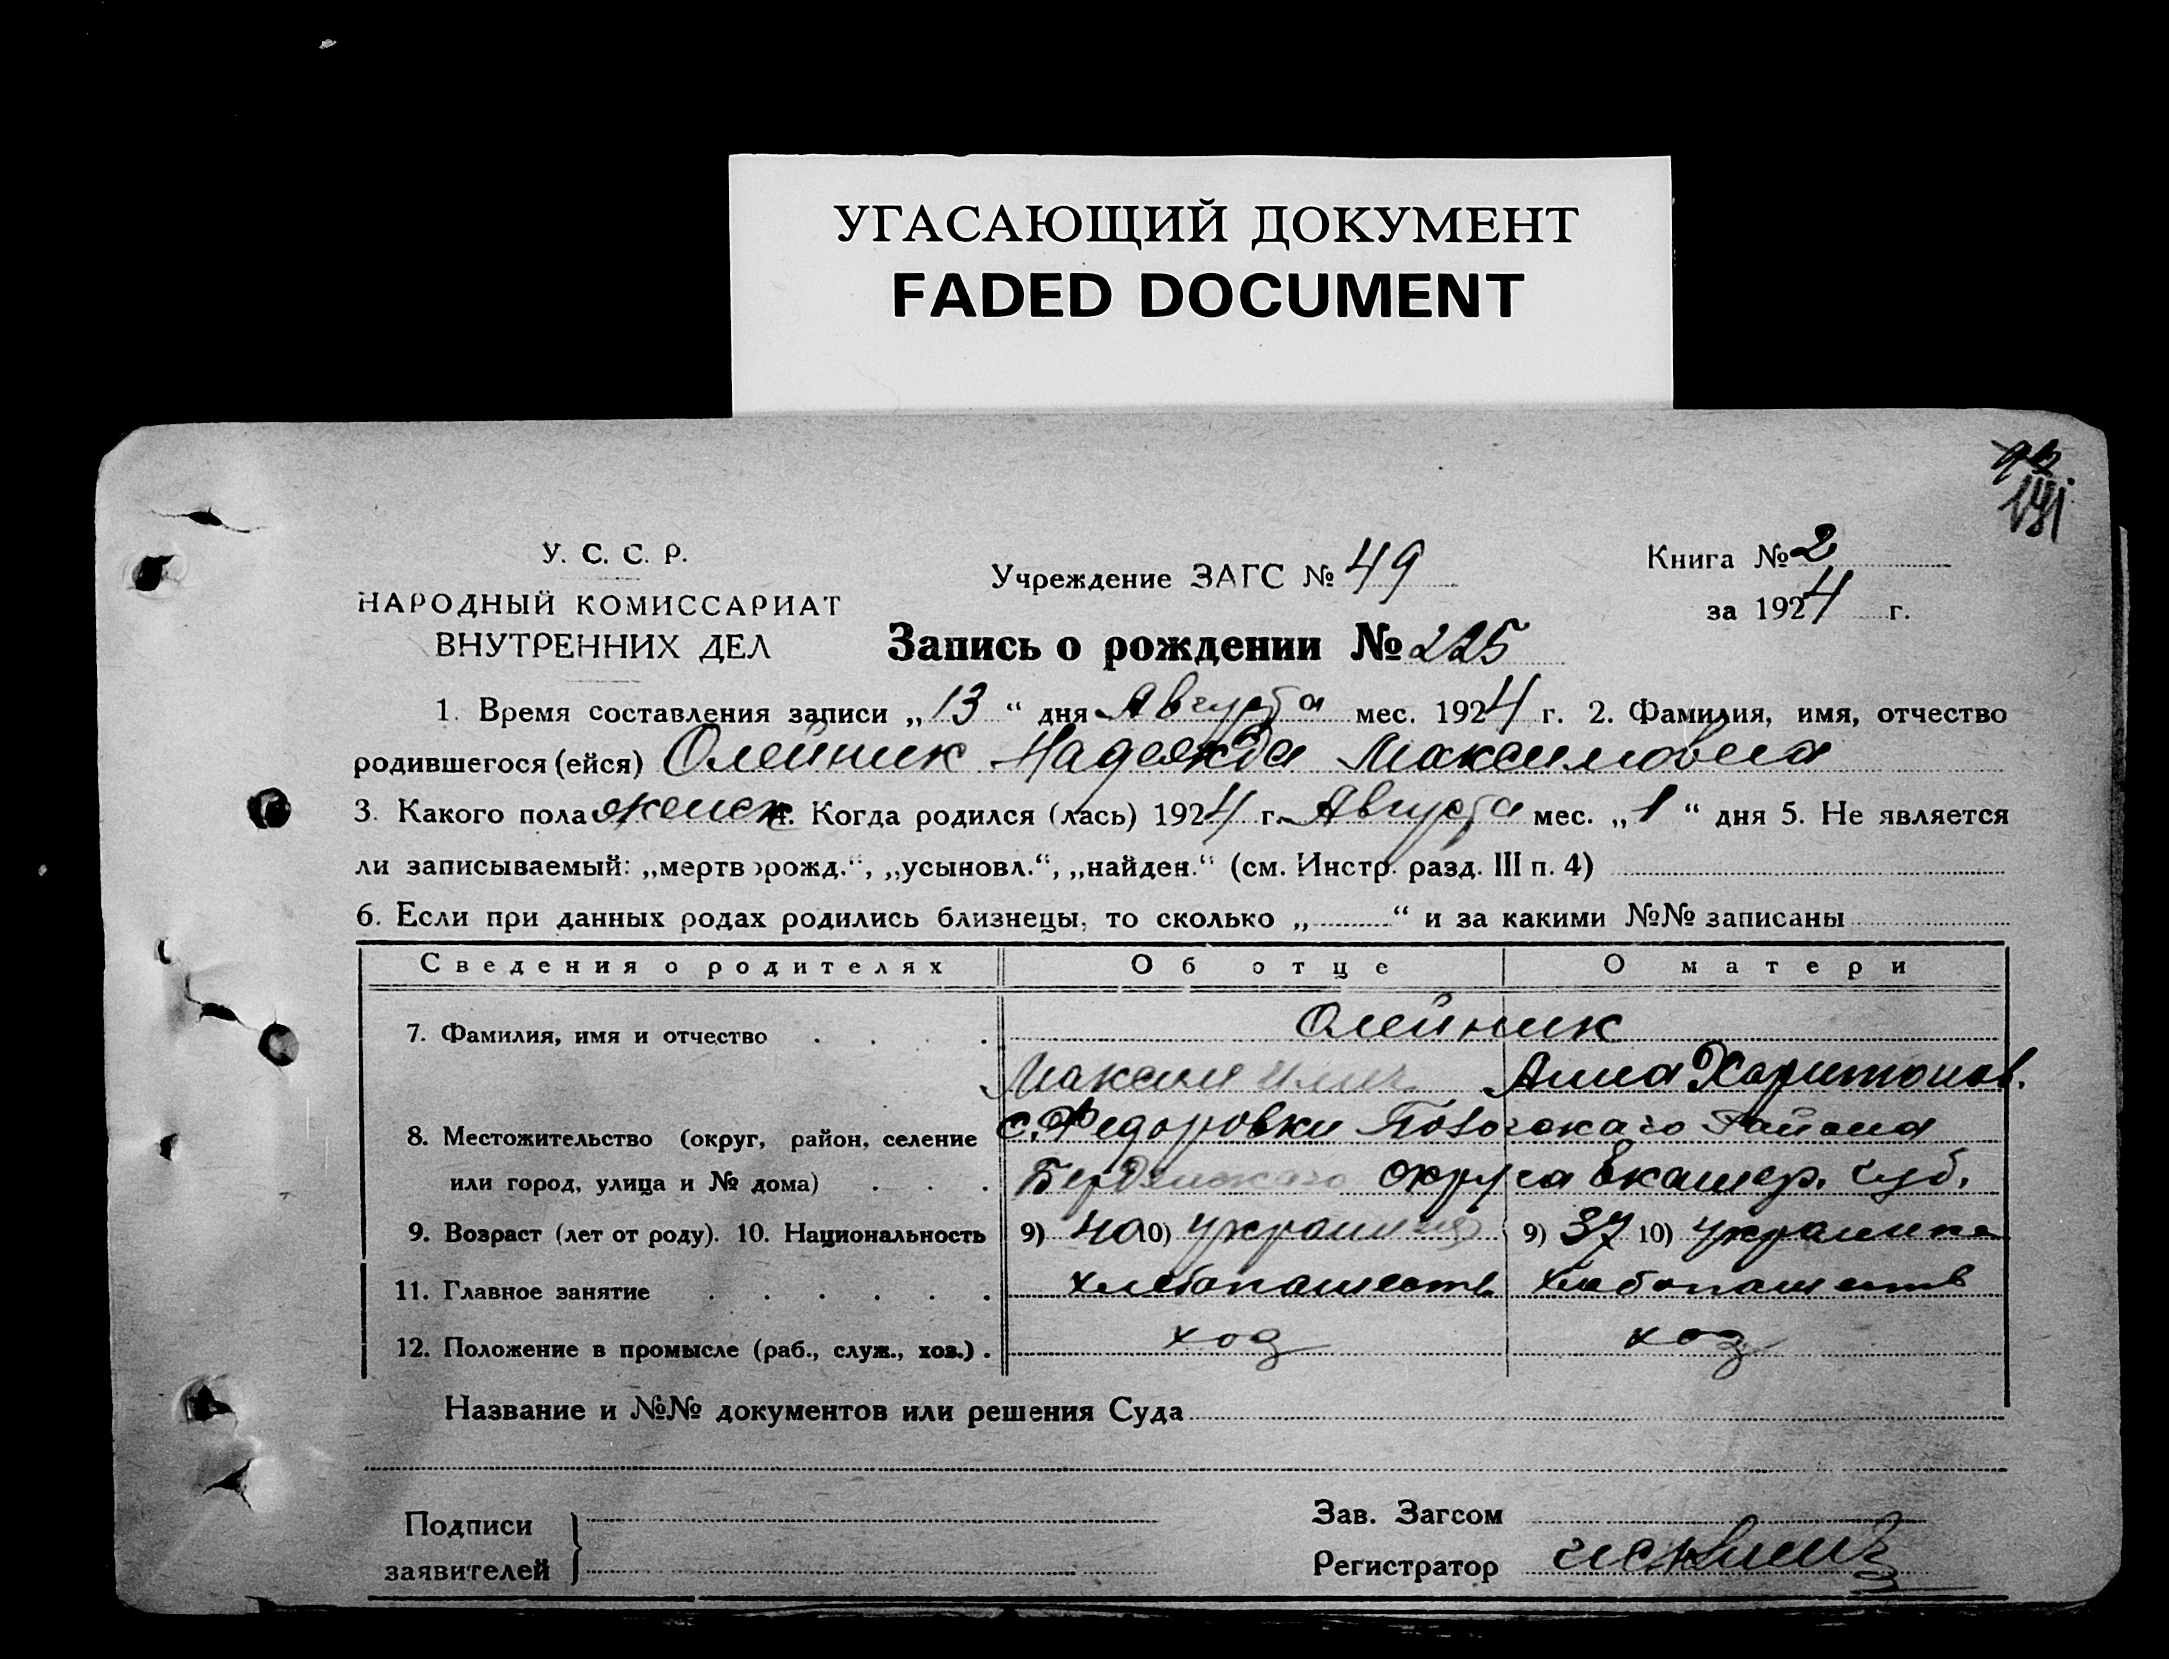 УГАСАЮЩИЙ ДОКУМЕНТ
FADED DOCUMENT
У. С. С. Р.
НАРОДНЫЙ КОМИССАРИАТ
ВНУТРЕННИХ ДЕЛ
Учреждение ЗАГС № 49
Книга № 2
за 1924 г.
Запись о рождении № 225
1. Время составления записи „13“ дня Августа мес. 1924 г. 2. Фамилия, имя, отчество
родившегося (ейся) Олейник Надежда Максимовна
3. Какого пола женск 4. Когда родился (лась) 1924 г. Августа мес. „1“ дня 5. Не является
ли записываемый: „мертворожд.“, „усыновл.“, „найден.“ (см. Инстр. разд. III п. 4)
6. Если при данных родах родились близнецы, то сколько „ “ и за какими №№ записаны
Сведения о родителях Об отце О матери
7. Фамилия, имя и отчество Олейник
Максим Анна Харитонов.
8. Местожительство (округ, район, селение с. Федоровки Пологскаго Района
или город, улица и № дома) Бердянскаго округа Екатер. губ.
9. Возраст (лет от роду). 10. Национальность 9) 40 10) украинец 9) 37 10) украинка
11. Главное занятие хлебопашеств хлебопашеств
12. Положение в промысле (раб., служ., хоз.) хоз хоз
Название и №№ документов или решения Суда
Подписи
заявителей
Зав. Загсом
Регистратор